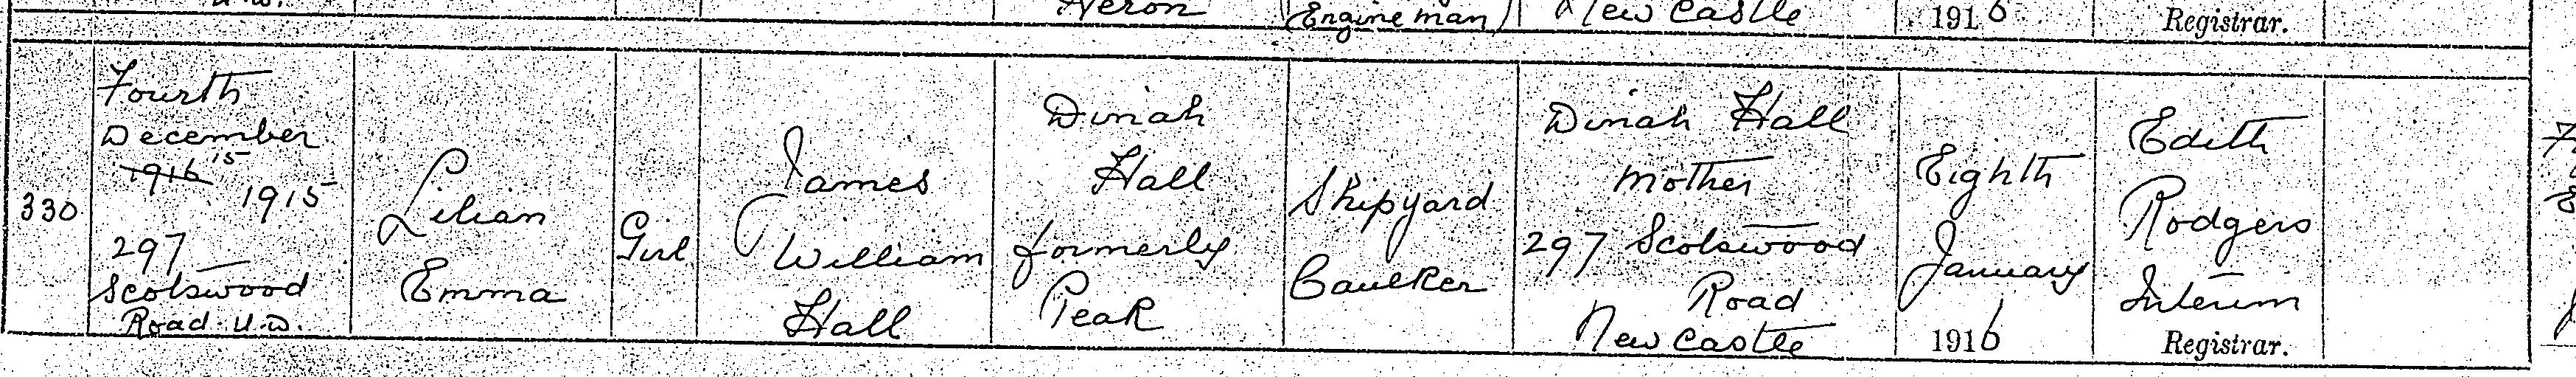 Heron
(Engine man)
New Castle
1916
Registrar.
330
Fourth
December
1916 15
1915
297
Scotswood
Road. U.D.
Lilian
Emma
Girl
James
William
Hall
Dinah
Hall
formerly
Peak
Shipyard
Caulker
Dinah Hall
Mother
297 Scotswood
Road
New Castle
Eighth
January
1916
Edith
Rodgers
Interim
Registrar.